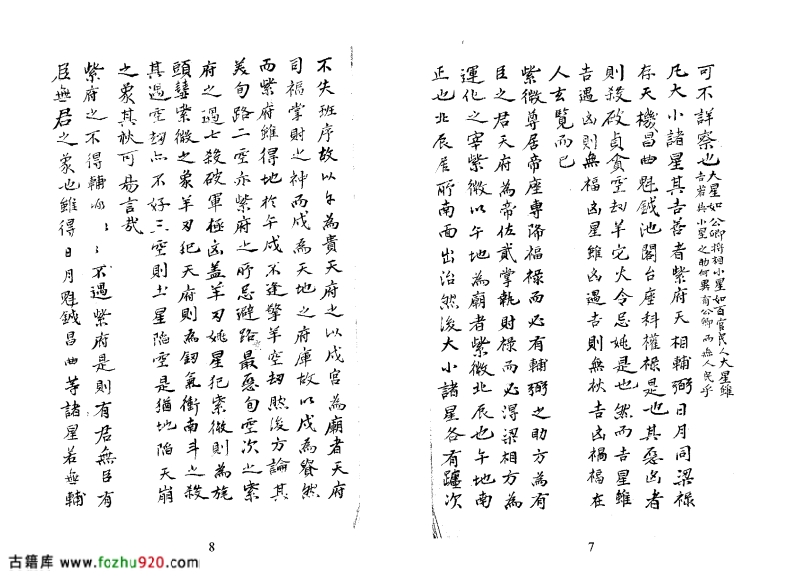 可不詳察也大星如公卿將相小星如百官民人大星雖
吉若無小星之助何異有公卿而無人民乎
凡大小諸星其吉善者紫府天相輔弼日月同梁祿
存天機昌曲魁鉞池閣台座科權祿是也其惡凶者
則殺破貞貪空劫羊陀火令忌姚是也然而吉星雖
吉遇凶則無福凶星雖凶遇吉則無秋吉凶禍福在
人玄覽而已
紫微尊居帝座專降福祿而必有輔弼之助方為有
臣之君天府為帝佐貳掌執財祿而必得梁相方為
運化之宰紫微以午地為廟者紫微北辰也午地南
正也北辰居所南面出治然後大小諸星各有躔次
不失班序故以午為貴天府之以戌宮為廟者天府
司福掌財之神而戌為天地之府庫故以戌為貴然
而紫府雖得地於午戌不逢擎羊空劫然後方論其
美旬路二空亦紫府之所忌避路最惡旬空次之紫
府之遇七殺破軍極凶盖羊刃姚星犯紫微則為旄
頭彗紫微之象羊刃犯天府則為釰氣衝南斗之殺
其遇空劫亦不好三空則土星陷空是猶地陷天崩
之象其秋可易言哉
紫府之不得輔弼〻〻不遇紫府是則有君無臣有
臣無君之象也雖得日月魁鉞昌曲等諸星若無輔
8
7
古籍库 www.fozhu920.com